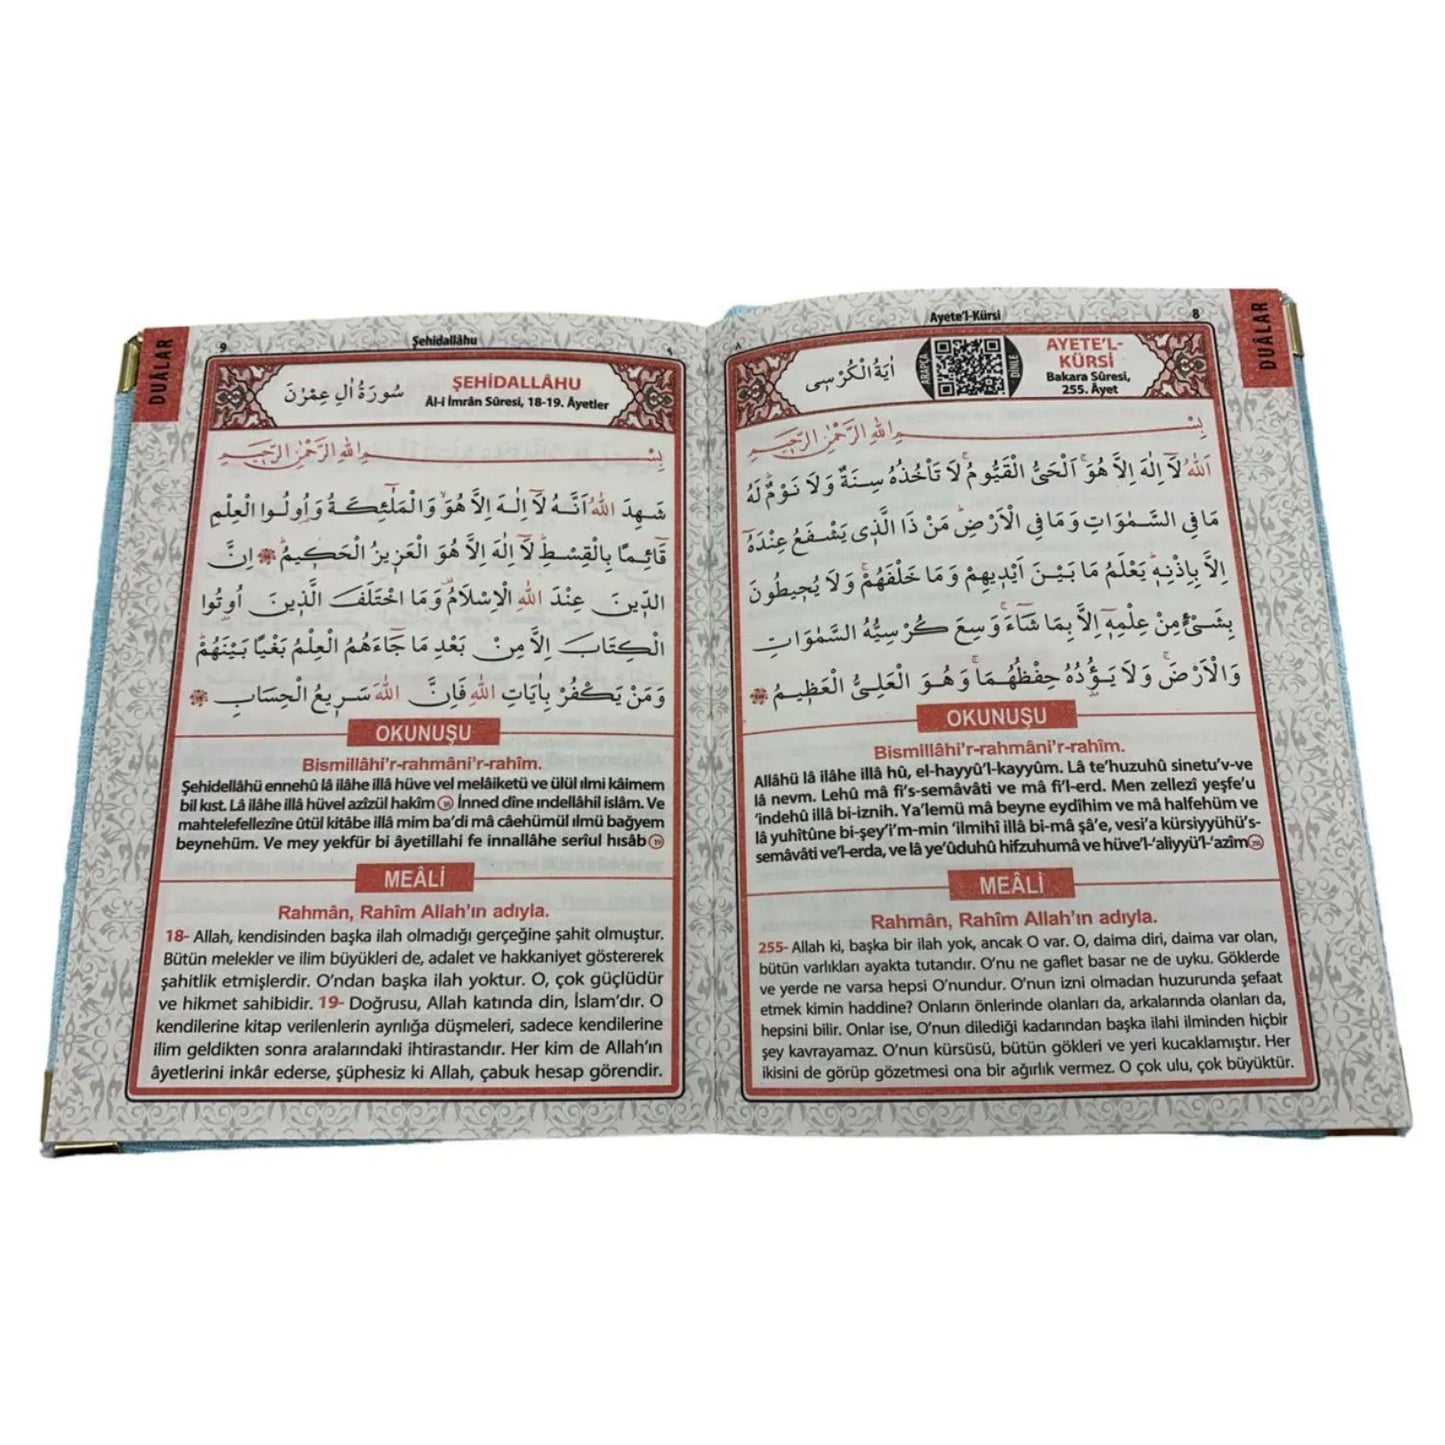 DUÂLAR
8
Ayete'l-Kürsi
٨
AYETE'L-
KÜRSİ
Bakara Sûresi,
255. Âyet
ARAPÇA
DİNLE
اٰيَةُ الْكُرْسِى
بِسْمِ اللّٰهِ الرَّحْمٰنِ الرَّحٖيمِ
اَللّٰهُ لَٓا اِلٰهَ اِلَّا هُوَۚ اَلْحَىُّ الْقَيُّومُۚ لَا تَاْخُذُهُ سِنَةٌ وَلَا نَوْمٌۜ لَهُ
مَا فِى السَّمٰوَاتِ وَمَا فِى الْاَرْضِۜ مَنْ ذَا الَّذٖى يَشْفَعُ عِنْدَهُٓ
اِلَّا بِاِذْنِهٖۜ يَعْلَمُ مَا بَيْنَ اَيْدٖيهِمْ وَمَا خَلْفَهُمْۚ وَلَا يُحٖيطُونَ
بِشَىْءٍ مِنْ عِلْمِهٖٓ اِلَّا بِمَا شَٓاءَۚ وَسِعَ كُرْسِيُّهُ السَّمٰوَاتِ
وَالْاَرْضَۚ وَلَا يَؤُدُهُ حِفْظُهُمَاۚ وَهُوَ الْعَلِىُّ الْعَظٖيمُ
OKUNUŞU
Bismillâhi'r-rahmâni'r-rahîm.
Allâhü lâ ilâhe illâ hû, el-hayyû'l-kayyûm. Lâ te'huzuhû sinetu'v-ve
lâ nevm. Lehû mâ fi's-semâvâti ve mâ fi'l-erd. Men zellezî yeşfe'u
'indehû illâ bi-iznih. Ya'lemü mâ beyne eydîhim ve mâ halfehüm ve
lâ yuhîtûne bi-şey'i'm-min 'ilmihî illâ bi-mâ şâ'e, vesi'a kürsiyyühü's-
semâvâti ve'l-erda, ve lâ ye'ûduhû hifzuhumâ ve hüve'l-'aliyyü'l-'azîm 255
MEÂLİ
Rahmân, Rahîm Allah'ın adıyla.
255- Allah ki, başka bir ilah yok, ancak O var. O, daima diri, daima var olan,
bütün varlıkları ayakta tutandır. O'nu ne gaflet basar ne de uyku. Göklerde
ve yerde ne varsa hepsi O'nundur. O'nun izni olmadan huzurunda şefaat
etmek kimin haddine? Onların önlerinde olanları da, arkalarında olanları da,
hepsini bilir. Onlar ise, O'nun dilediği kadarından başka ilahi ilminden hiçbir
şey kavrayamaz. O'nun kürsüsü, bütün gökleri ve yeri kucaklamıştır. Her
ikisini de görüp gözetmesi ona bir ağırlık vermez. O çok ulu, çok büyüktür.
DUÂLAR
9
Şehidallâhu
٩
ŞEHİDALLÂHU
Âl-i İmrân Sûresi, 18-19. Âyetler
سُورَةُ اٰلِ عِمْرٰنَ
بِسْمِ اللّٰهِ الرَّحْمٰنِ الرَّحٖيمِ
شَهِدَ اللّٰهُ اَنَّهُ لَٓا اِلٰهَ اِلَّا هُوَۙ وَالْمَلٰٓئِكَةُ وَاُو۬لُوا الْعِلْمِ
قَٓائِمًا بِالْقِسْطِۜ لَٓا اِلٰهَ اِلَّا هُوَ الْعَزٖيزُ الْحَكٖيمُۜ اِنَّ
الدّٖينَ عِنْدَ اللّٰهِ الْاِسْلَامُ۠ وَمَا اخْتَلَفَ الَّذٖينَ اُو۫تُوا
الْكِتَابَ اِلَّا مِنْ بَعْدِ مَا جَٓاءَهُمُ الْعِلْمُ بَغْيًا بَيْنَهُمْۜ
وَمَنْ يَكْفُرْ بِاٰيَاتِ اللّٰهِ فَاِنَّ اللّٰهَ سَرٖيعُ الْحِسَابِ
OKUNUŞU
Bismillâhi'r-rahmâni'r-rahîm.
Şehidellâhü ennehû lâ ilâhe illâ hüve vel melâiketü ve ülül ılmi kâimem
bil kıst. Lâ ilâhe illâ hüvel azîzül hakîm 18 İnned dîne ındellâhil islâm. Ve
mahtelefellezîne ûtül kitâbe illâ mim ba'di mâ câehümül ılmü bağyem
beynehüm. Ve mey yekfür bi âyetillahi fe innallâhe serîul hısâb 19
MEÂLİ
Rahmân, Rahîm Allah'ın adıyla.
18- Allah, kendisinden başka ilah olmadığı gerçeğine şahit olmuştur.
Bütün melekler ve ilim büyükleri de, adalet ve hakkaniyet göstererek
şahitlik etmişlerdir. O'ndan başka ilah yoktur. O, çok güçlüdür
ve hikmet sahibidir. 19- Doğrusu, Allah katında din, İslam'dır. O
kendilerine kitap verilenlerin ayrılığa düşmeleri, sadece kendilerine
ilim geldikten sonra aralarındaki ihtirastandır. Her kim de Allah'ın
âyetlerini inkâr ederse, şüphesiz ki Allah, çabuk hesap görendir.